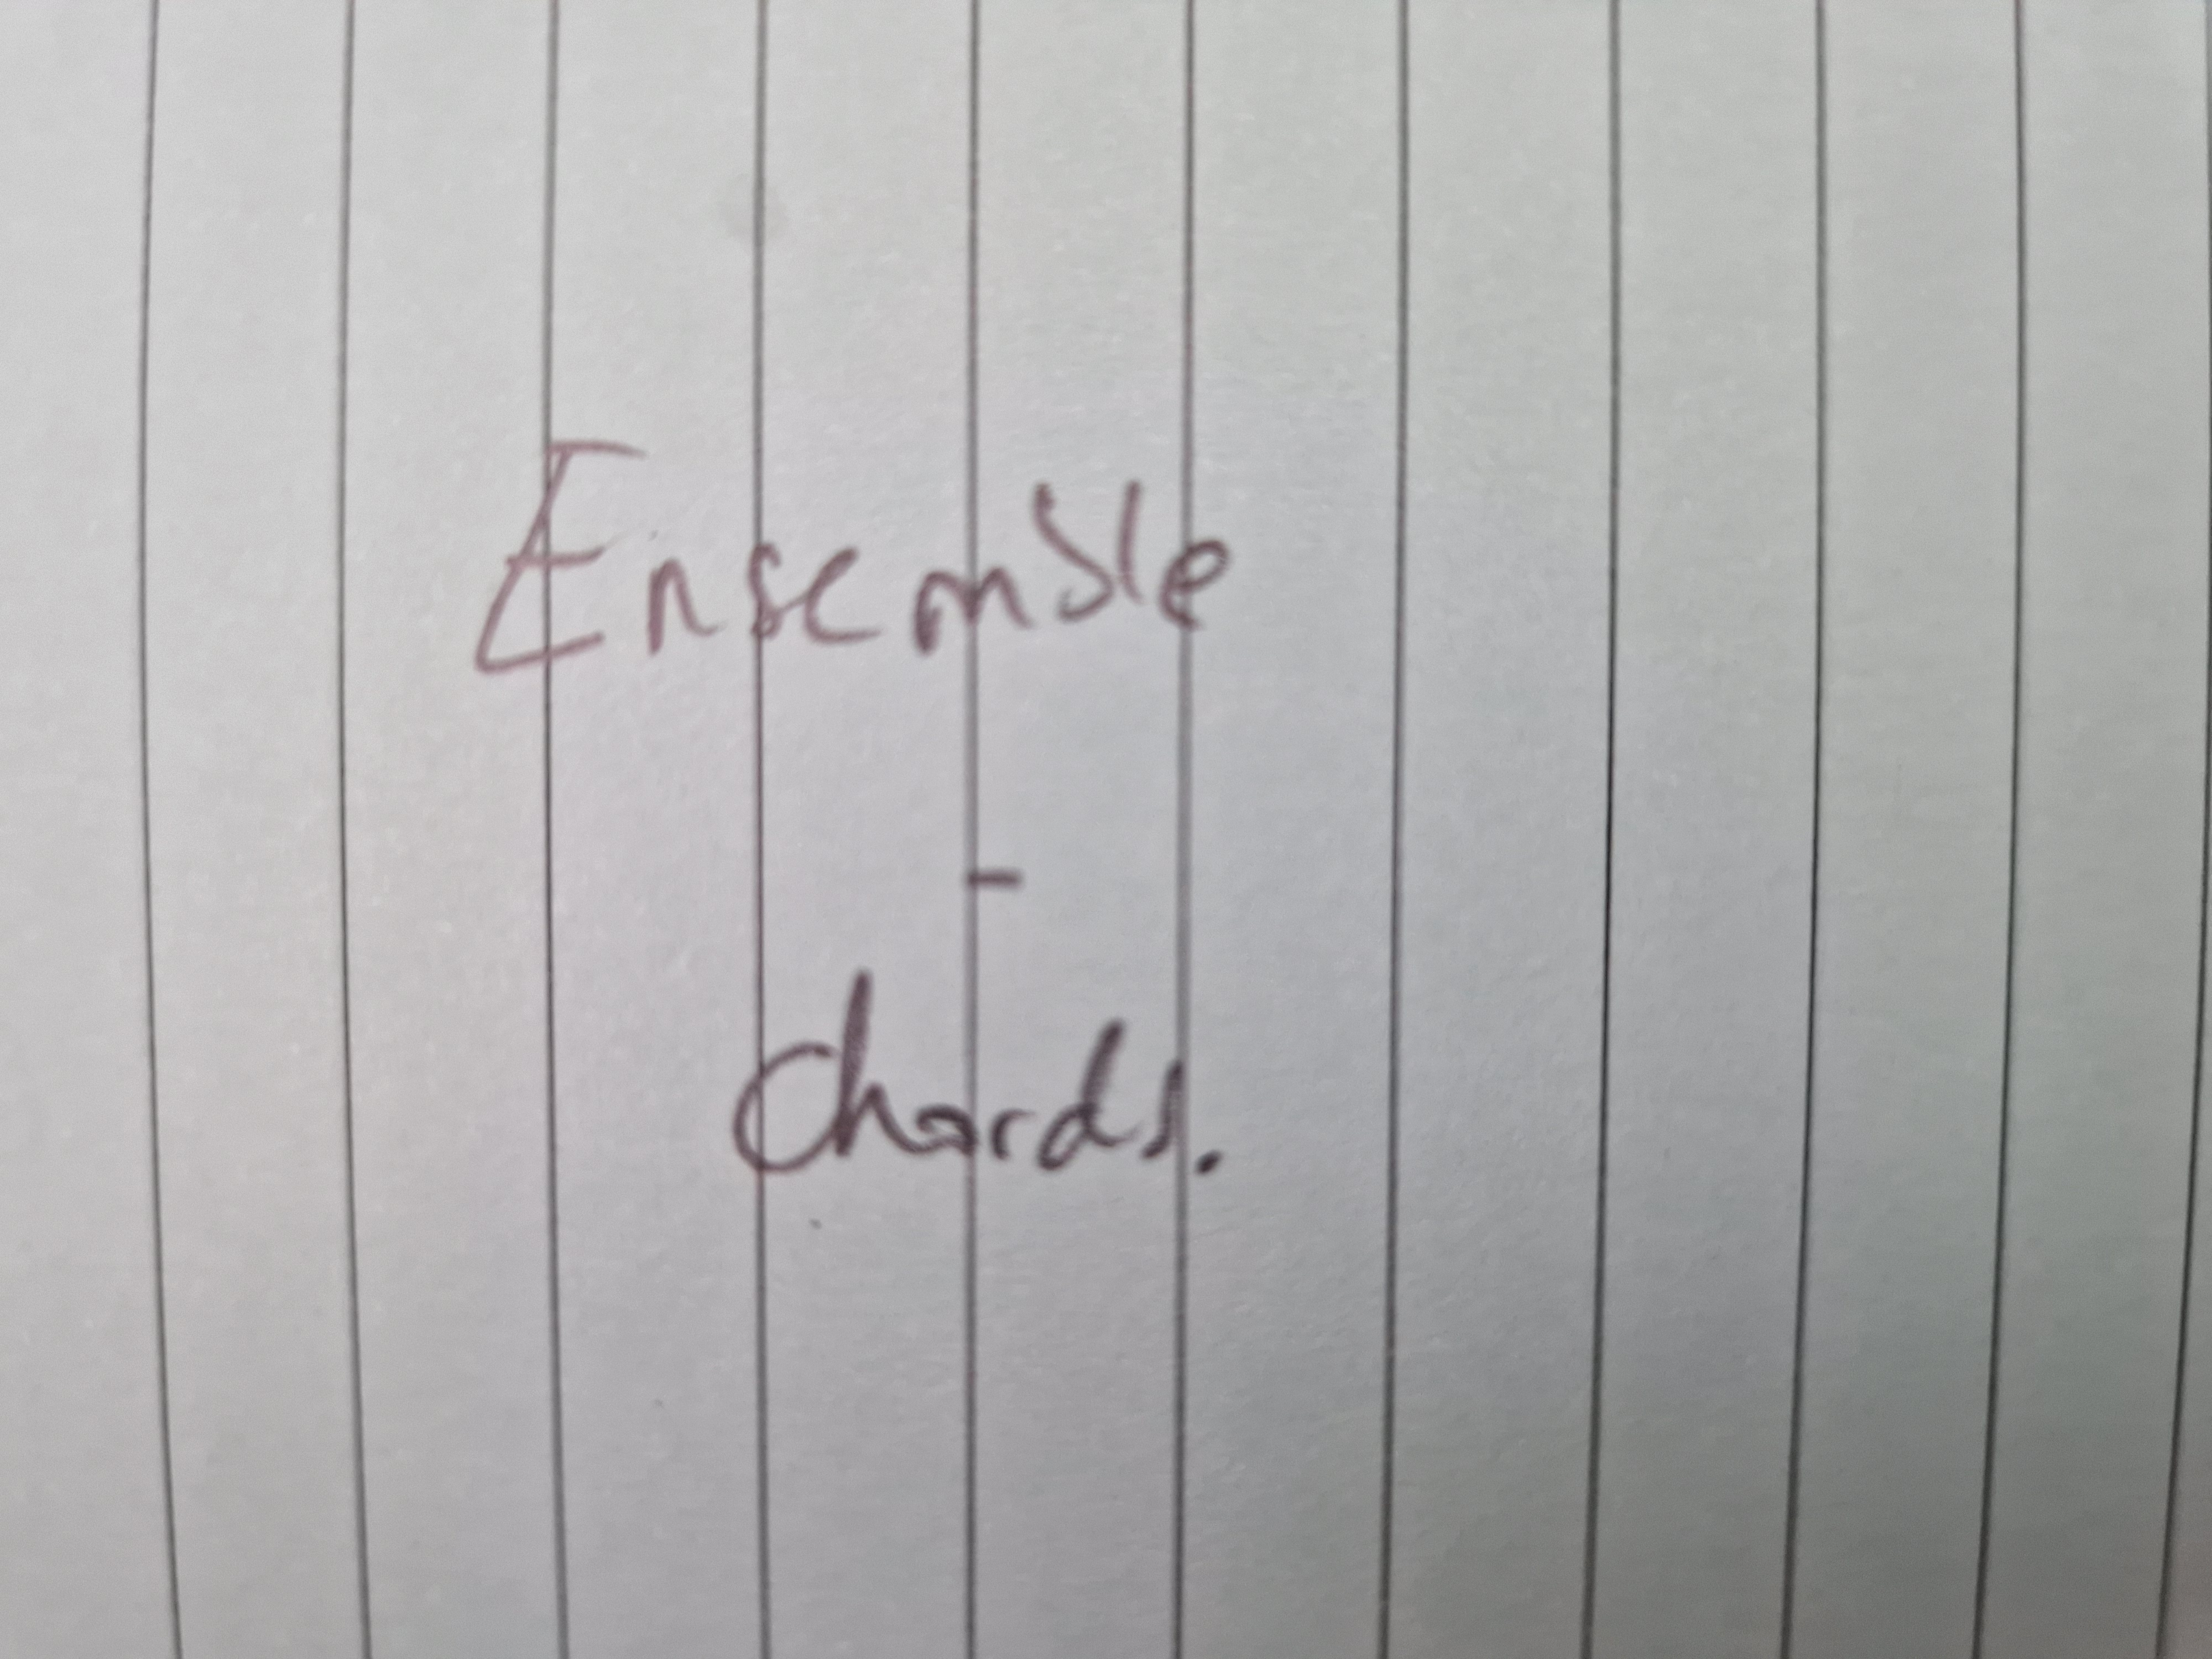 Ensemble
-
chords.